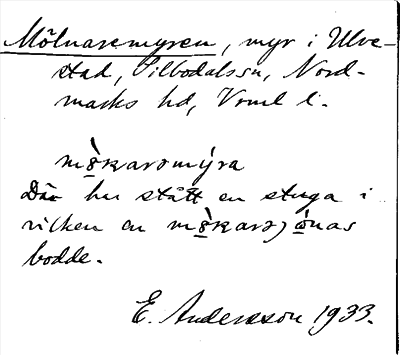 Mölnaremyren, myr i Ulve-
stad, Silbodalssn, Nord-
marks hd, Vrml l.
mö̀ḷnarəmýra
Där har stått en stuga i
vilken en
bodde.
E. Andersson 1933.